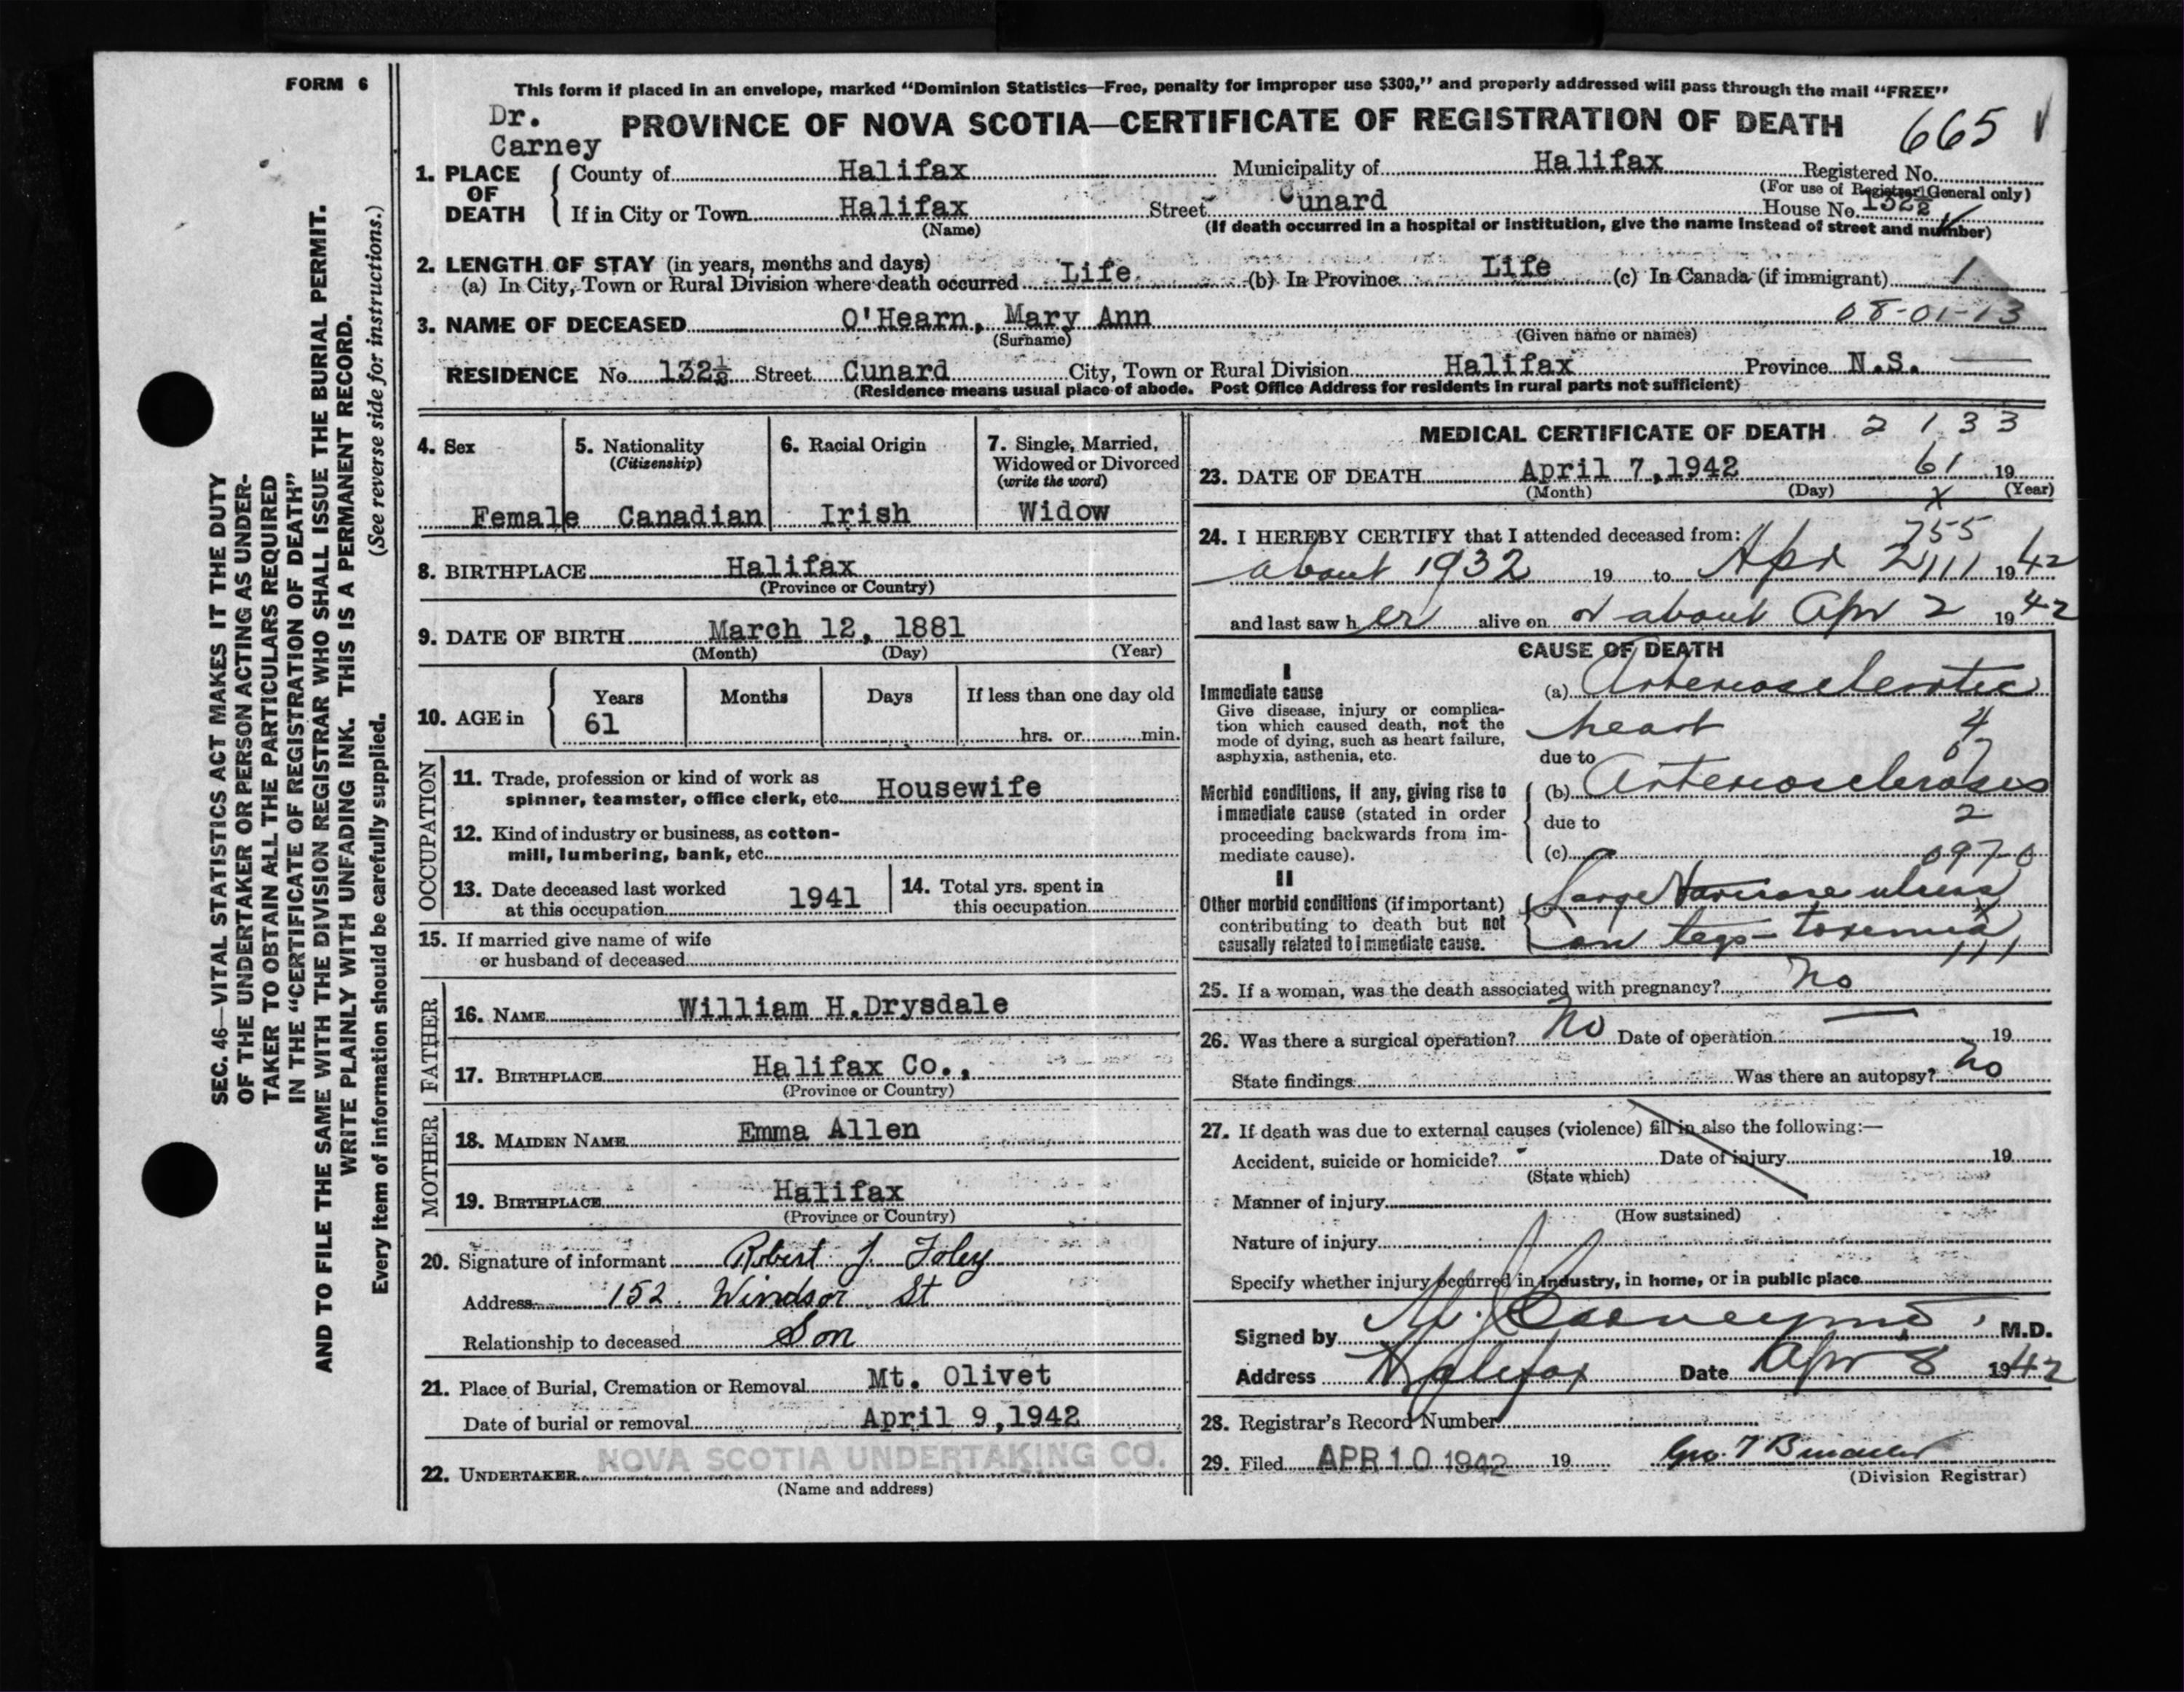 FORM 6
This form if placed in an envelope, marked "Dominion Statistics—Free, penalty for improper use $300," and properly addressed will pass through the mail "FREE"
Dr.
Carney
PROVINCE OF NOVA SCOTIA—CERTIFICATE OF REGISTRATION OF DEATH 665
1. PLACE OF DEATH
County of Halifax Municipality of Halifax Registered No.
(For use of Registrar General only)
If in City or Town Halifax Street Cunard House No. 132½
(Name) (If death occurred in a hospital or institution, give the name instead of street and number)
2. LENGTH OF STAY (in years, months and days)
(a) In City, Town or Rural Division where death occurred Life (b) In Province Life (c) In Canada (if immigrant) 1
08-01-13
3. NAME OF DECEASED O'Hearn, Mary Ann
(Surname) (Given name or names)
RESIDENCE No. 132½ Street Cunard City, Town or Rural Division Halifax Province N.S.
(Residence means usual place of abode. Post Office Address for residents in rural parts not sufficient)
SEC. 46—VITAL STATISTICS ACT MAKES IT THE DUTY
OF THE UNDERTAKER OR PERSON ACTING AS UNDER-
TAKER TO OBTAIN ALL THE PARTICULARS REQUIRED
IN THE "CERTIFICATE OF REGISTRATION OF DEATH"
AND TO FILE THE SAME WITH THE DIVISION REGISTRAR WHO SHALL ISSUE THE BURIAL PERMIT.
WRITE PLAINLY WITH UNFADING INK. THIS IS A PERMANENT RECORD.
Every item of information should be carefully supplied. (See reverse side for instructions.)
4. Sex
Female
5. Nationality
(Citizenship)
Canadian
6. Racial Origin
Irish
7. Single, Married,
Widowed or Divorced
(write the word)
Widow
8. BIRTHPLACE Halifax
(Province or Country)
9. DATE OF BIRTH March 12, 1881
(Month) (Day) (Year)
10. AGE in Years Months Days If less than one day old
61 hrs. or min.
OCCUPATION
11. Trade, profession or kind of work as
spinner, teamster, office clerk, etc. Housewife
12. Kind of industry or business, as cotton-
mill, lumbering, bank, etc.
13. Date deceased last worked
at this occupation 1941
14. Total yrs. spent in
this occupation
15. If married give name of wife
or husband of deceased
FATHER
16. NAME William H.Drysdale
17. BIRTHPLACE Halifax Co.,
(Province or Country)
MOTHER
18. MAIDEN NAME Emma Allen
19. BIRTHPLACE Halifax
(Province or Country)
20. Signature of informant Robert J. Foley
Address 152 Windsor St
Relationship to deceased Son
21. Place of Burial, Cremation or Removal Mt. Olivet
Date of burial or removal April 9,1942
22. UNDERTAKER NOVA SCOTIA UNDERTAKING CO.
(Name and address)
MEDICAL CERTIFICATE OF DEATH 2 1 3 3
23. DATE OF DEATH April 7,1942 61 19
(Month) (Day) (Year)
x
755
24. I HEREBY CERTIFY that I attended deceased from:
about 1932 19 to Apr 2 111 1942
and last saw her alive on or about Apr 2 1942
CAUSE OF DEATH
I
Immediate cause
Give disease, injury or complica-
tion which caused death, not the
mode of dying, such as heart failure,
asphyxia, asthenia, etc.
(a) Arteriosclerotic
heart 4
due to
Morbid conditions, if any, giving rise to
immediate cause (stated in order
proceeding backwards from im-
mediate cause).
(b) Arteriosclerosis
due to 2
(c) 097 0
II
Other morbid conditions (if important)
contributing to death but not
causally related to immediate cause.
Large Varicose ulcers
on legs – toxemia
111
25. If a woman, was the death associated with pregnancy? No
26. Was there a surgical operation? No Date of operation — 19
State findings Was there an autopsy? No
27. If death was due to external causes (violence) fill in also the following:—
Accident, suicide or homicide? Date of injury 19
(State which)
Manner of injury
(How sustained)
Nature of injury
Specify whether injury occurred in industry, in home, or in public place
Signed by Carney M.D.
Address Halifax Date Apr 8 1942
28. Registrar's Record Number
29. Filed APR 10 1942 19
(Division Registrar)